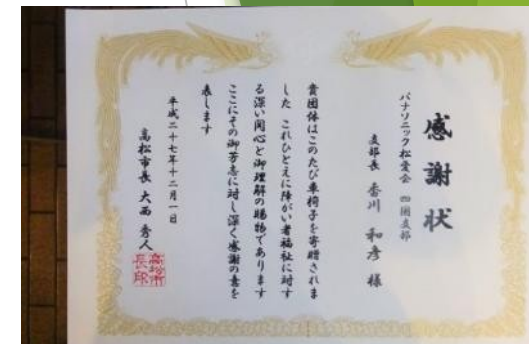 感謝状
パナソニック松愛会 四国支部
支部長 香川 和彦 様
貴団体はこのたび車椅子を寄贈されま
した これひとえに障がい者福祉に対す
る深い関心と御理解の賜物であります
ここにその御芳志に対し深く感謝の意を
表します
平成二十七年十二月一日
高松市長 大西 秀人
高松市長印